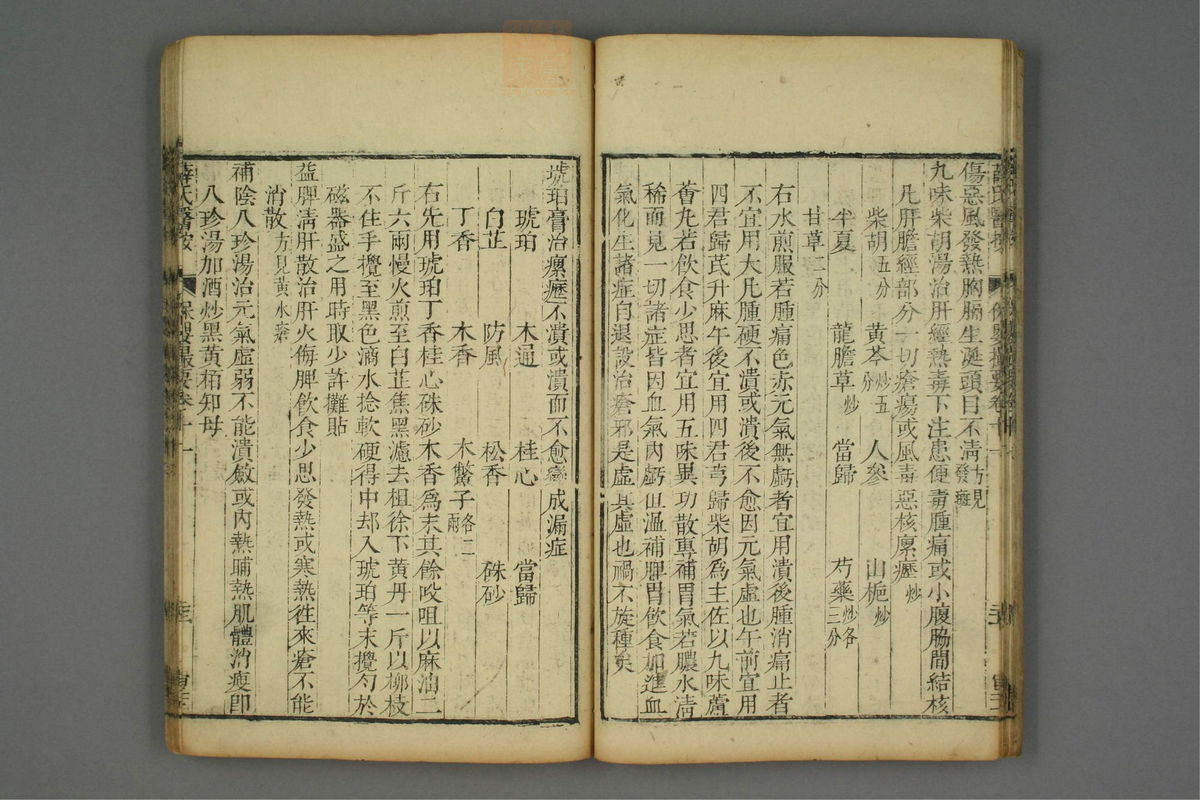 傷惡風發熱胸膈生涎頭目不清方見發癍
九味柴胡湯治肝經熱毒下注患便毒腫痛或小腹脇間結核
凡肝膽經部分一切瘡瘍或風毒惡核瘰癧
柴胡五分 黃芩炒五分 人參 山梔炒 炒
半夏 龍膽草炒 當歸 芍藥炒各三分
甘草二分
右水煎服若腫痛色赤元氣無虧者宜用潰後腫消痛止者
不宜用大凡腫硬不潰或潰後不愈因元氣虛也午前宜用
四君歸芪升麻午後宜用四君芎歸柴胡為主佐以九味蘆
薈丸若飲食少思者宜用五味異功散專補胃氣若膿水清
稀而見一切諸症皆因血氣內虧但溫補脾胃飲食加進血
氣化生諸症自退設治瘡邪是虛其虛也禍不旋踵矣
琥珀膏治瘰癧不潰或潰而不愈變成漏症
琥珀 木通 桂心 當歸
白芷 防風 松香 硃砂
丁香 木香 木鱉子各二兩
右先用琥珀丁香桂心硃砂木香為末其餘㕮咀以麻油二
斤六兩慢火煎至白芷焦黑濾去柤徐下黃丹一斤以柳枝
不住手攪至黑色滴水捻軟硬得中却入琥珀等末攪勻於
磁器盛之用時取少許攤貼
益脾清肝散治肝火侮脾飲食少思發熱或寒熱徃來瘡不能
消散方見黃水瘡
補陰八珍湯治元氣虛弱不能潰斂或內熱晡熱肌體消瘦即
八珍湯加酒炒黑黃栢知母
薛氏醫按 保嬰撮要卷十一